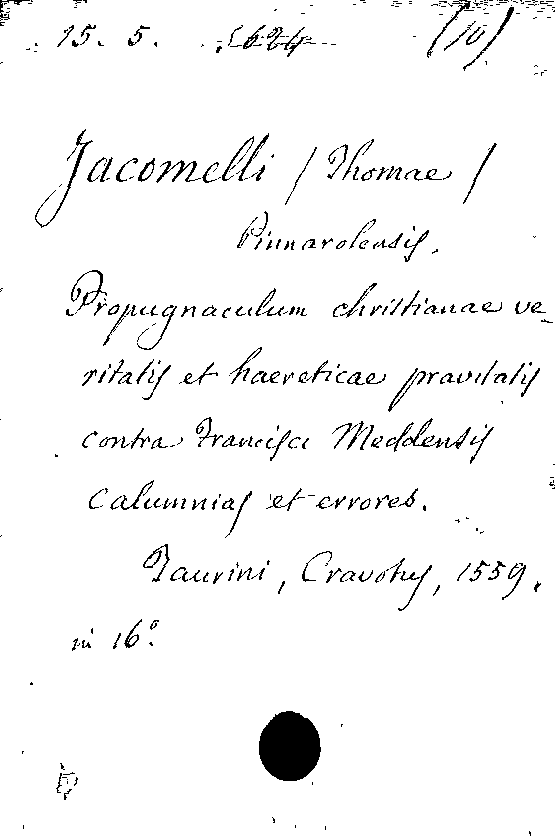 15. 5. 5624 (10)
Jacomelli / Thomae /
Pinnarolensis.
Propugnaculum christianae ve_
ritatis et haereticae pravitatis
contra Francisci Meddensis
calumnias et errores.
Taurini, Cravotus, 1559.
in 16°.